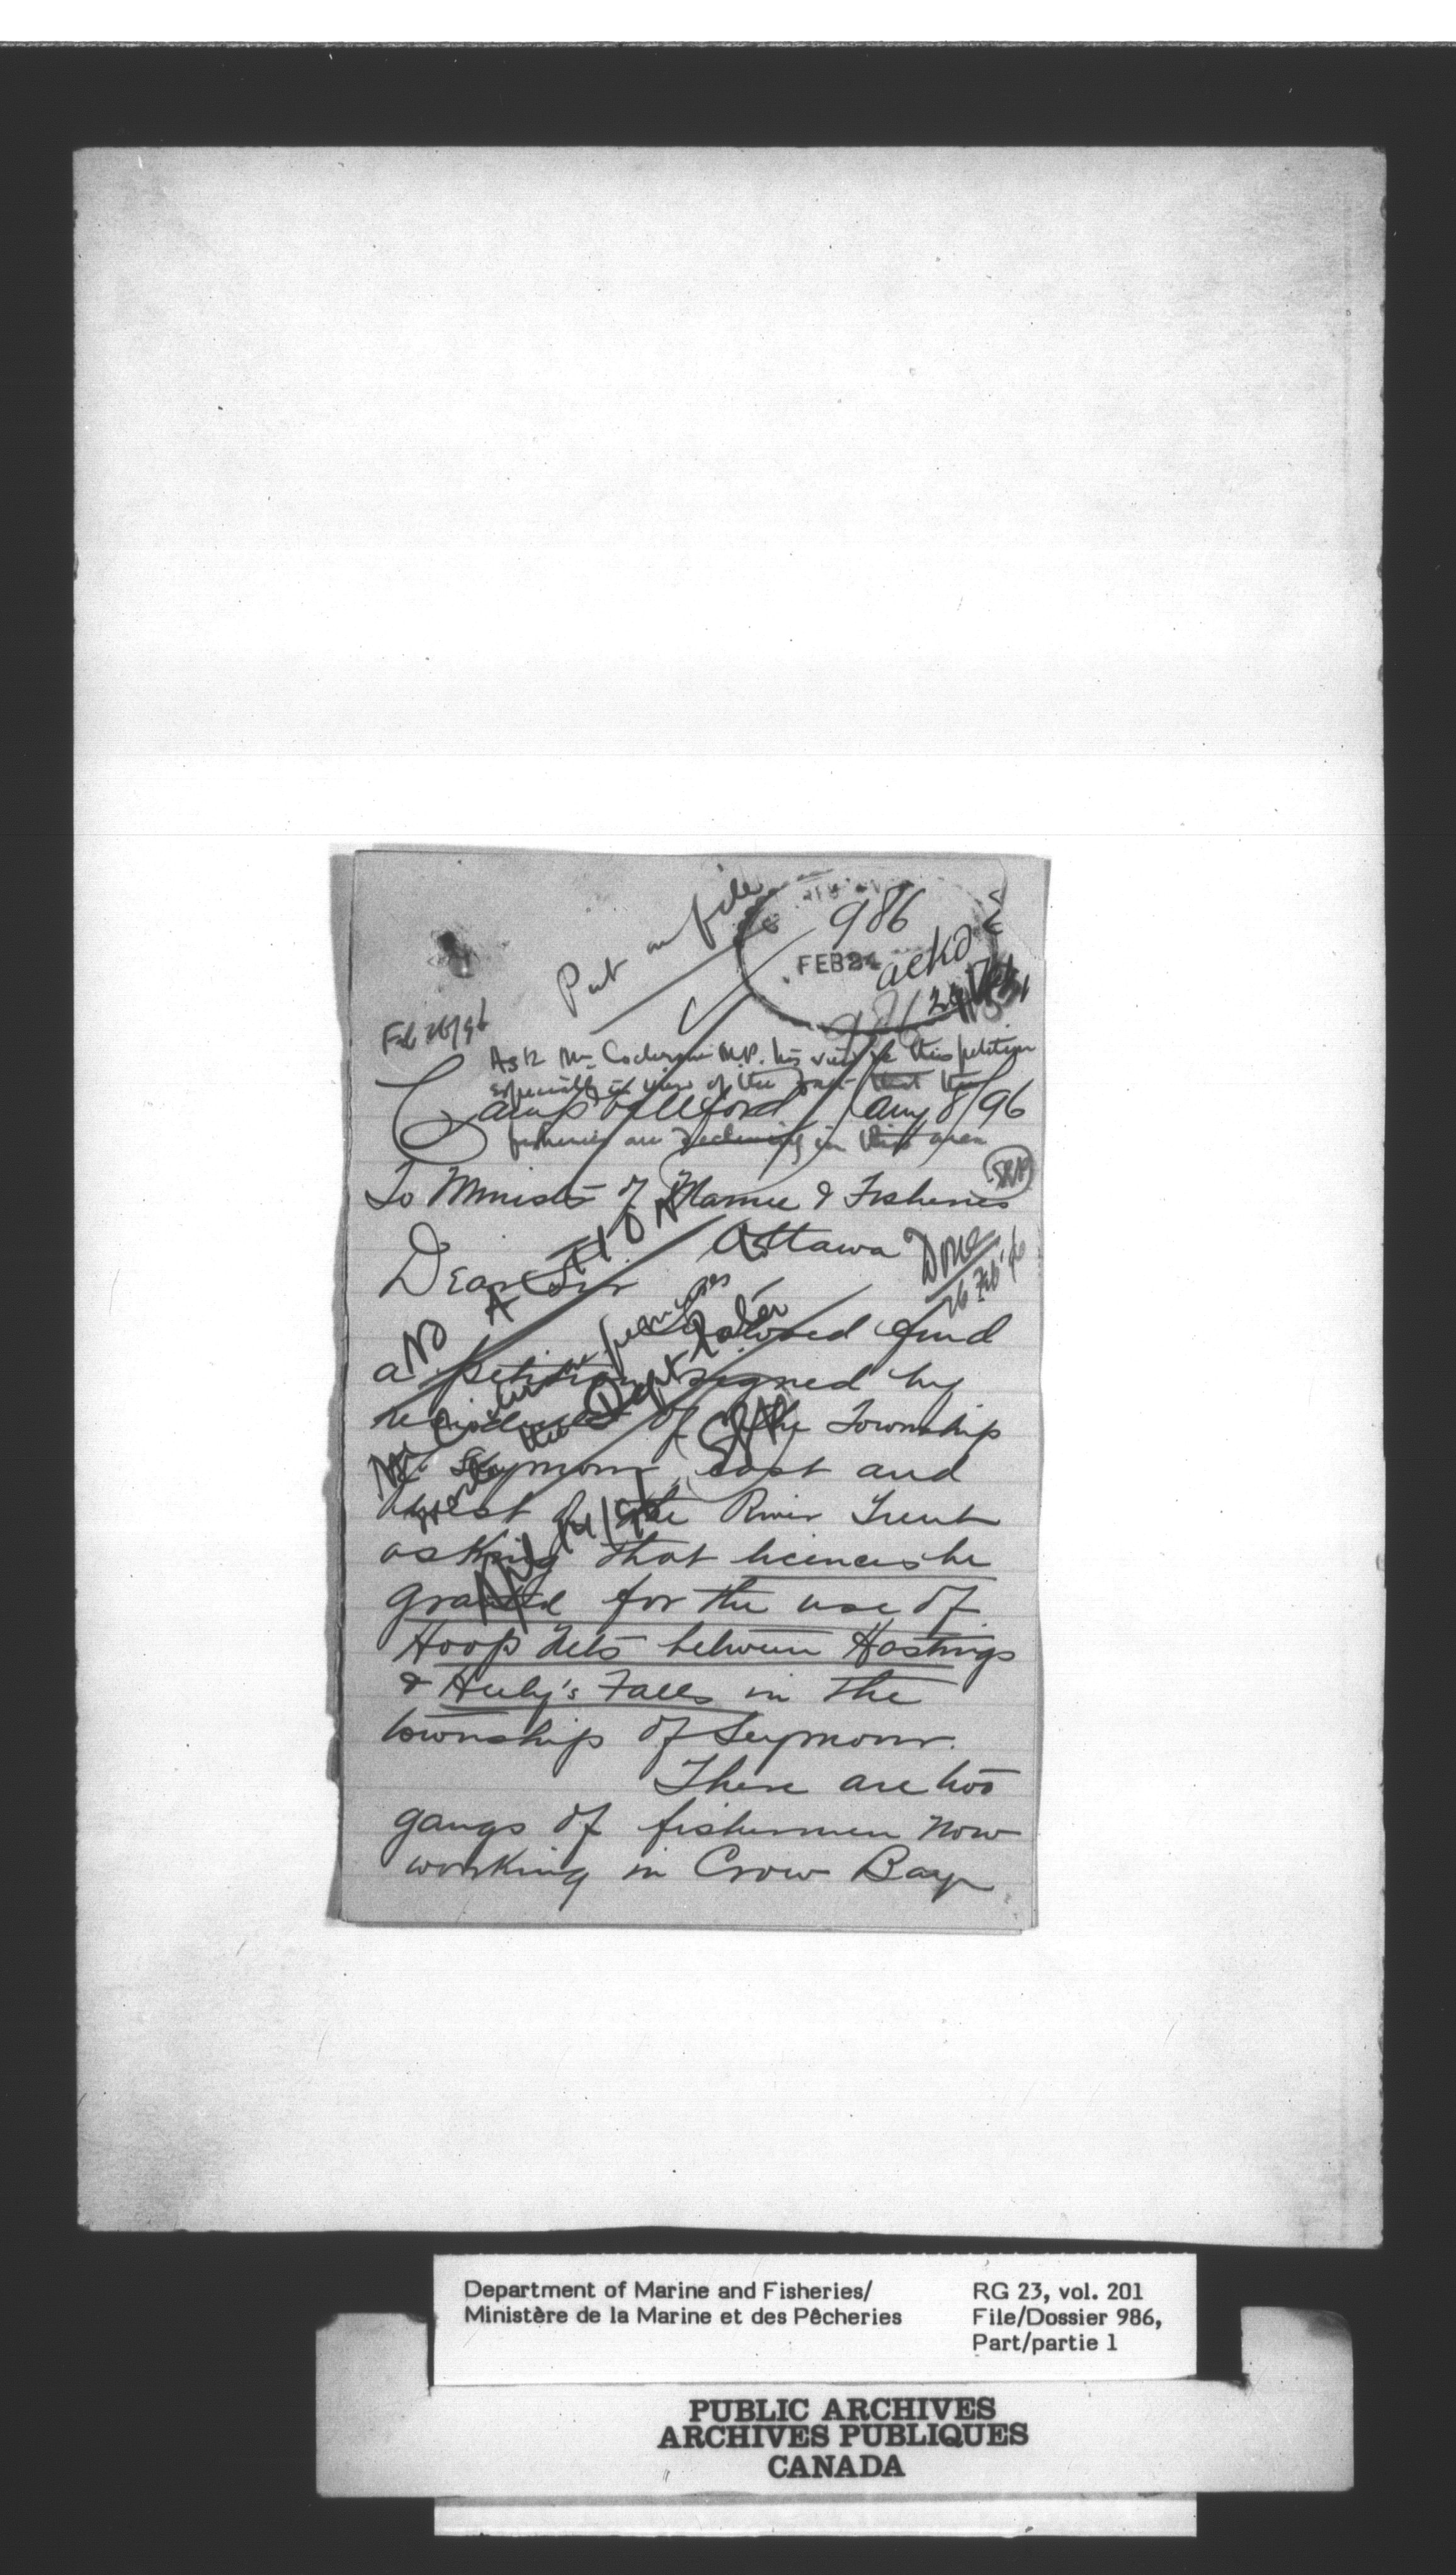 Put on file
986
FEB 24
ackd
Feb 26/96
Ask Mr Cochrane M.P. his view re this petition
especially in view of the fact that the
Campbellford 8/96
fisheries are declining in this area
SRP
To Minister of Marine & Fisheries
Ottawa
Done
26 Feb
Dear Sir
NO ACTION
find
a petition signed by
residents of the Township
of Seymour east and
west of the River Trent
asking that licences be
granted for the use of
Hoop Nets between Hastings
& Healy's Falls in the
township of Seymour.
There are two
gangs of fishermen now
working in Crow Bay
Department of Marine and Fisheries/
Ministère de la Marine et des Pêcheries
RG 23, vol. 201
File/Dossier 986,
Part/partie 1
PUBLIC ARCHIVES
ARCHIVES PUBLIQUES
CANADA